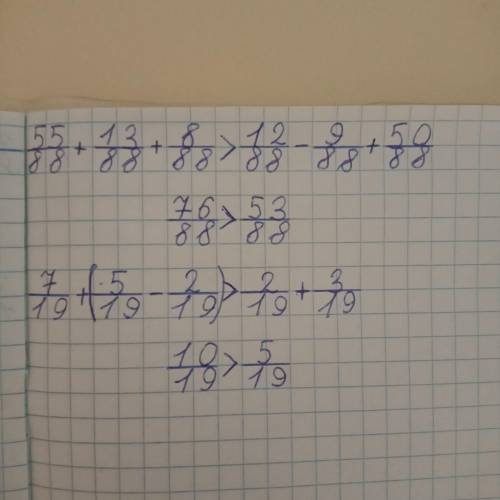 55/88 + 13/88 + 8/88 > 12/88 - 9/88 + 50/88
76/88 > 53/88
7/19 + (5/19 - 2/19) > 2/19 + 3/19
10/19 > 5/19